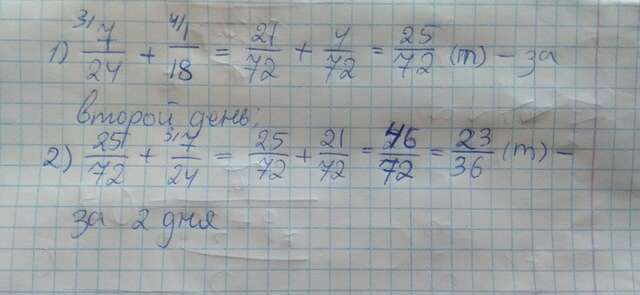 1) ³⁾7/24 + ⁴⁾1/18 = 21/72 + 4/72 = 25/72 (т) – за
второй день;
2) 25/72 + ³⁾7/24 = 25/72 + 21/72 = 46/72 = 23/36 (т) –
за 2 дня